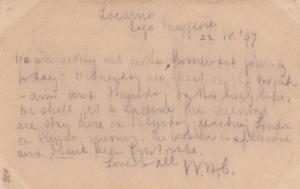 Locarno
Lago Maggiore
23. IX. '97
We are setting out on the homeward journey
today. Wednesday we spent on the mount-
ains and Thursday on this lovely lake.
We shall get to Lucerne this evening
are stay there on Saturday, reaching London
on Monday evening. The weather is
and been first rate.
Love to all
W.H.C.